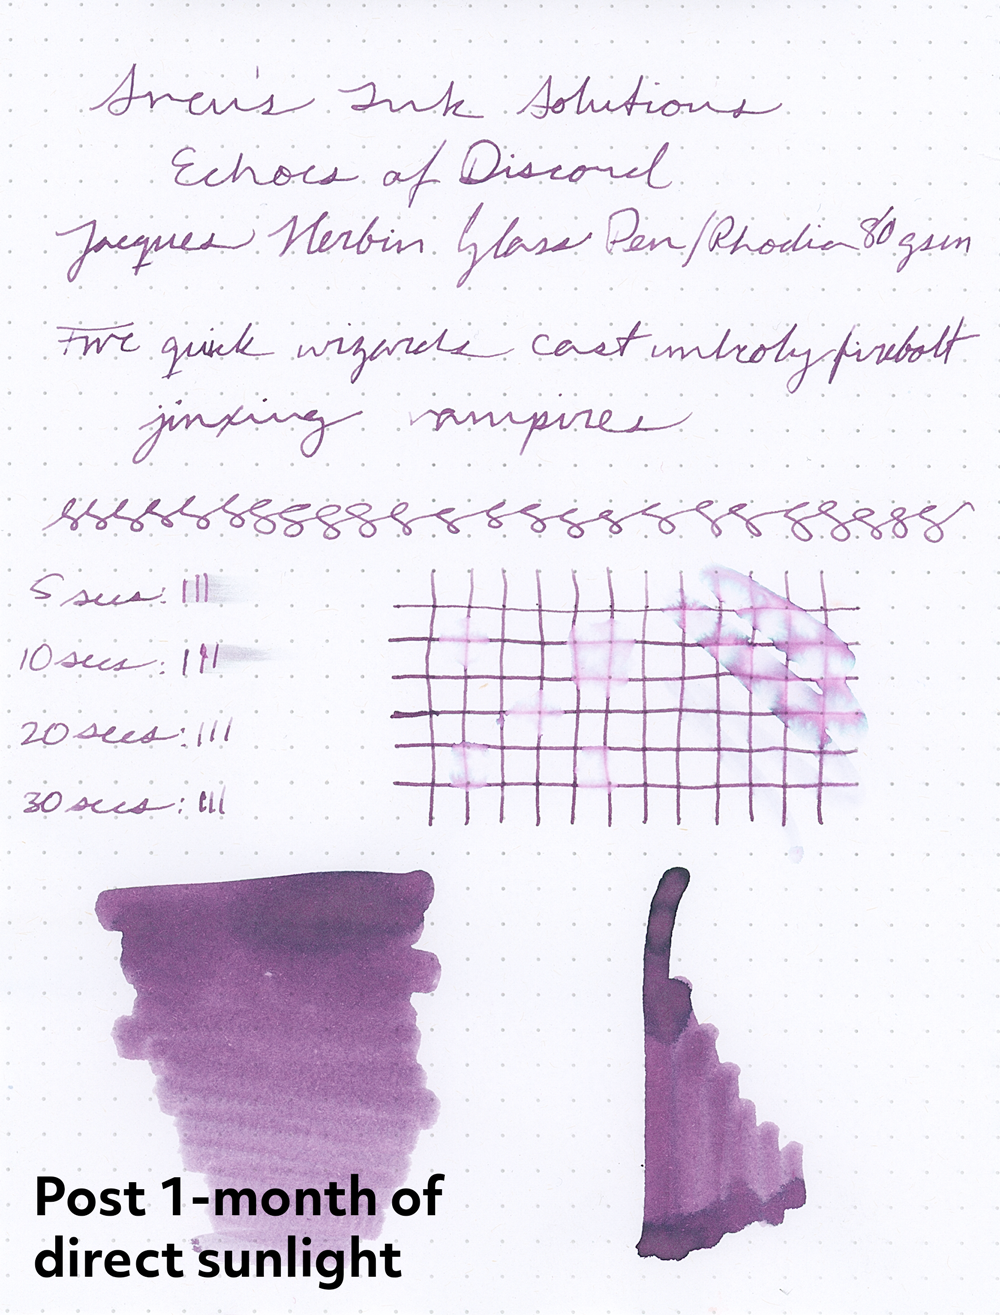 Ink Solutions
Echoes of Discord
Jacques Herbin Glass Pen/Rhodia 80 gsm
Five quick wizards cast firebolt
jinxing vampires
5 secs:
10 secs:
20 secs:
30 secs:
Post 1-month of
direct sunlight